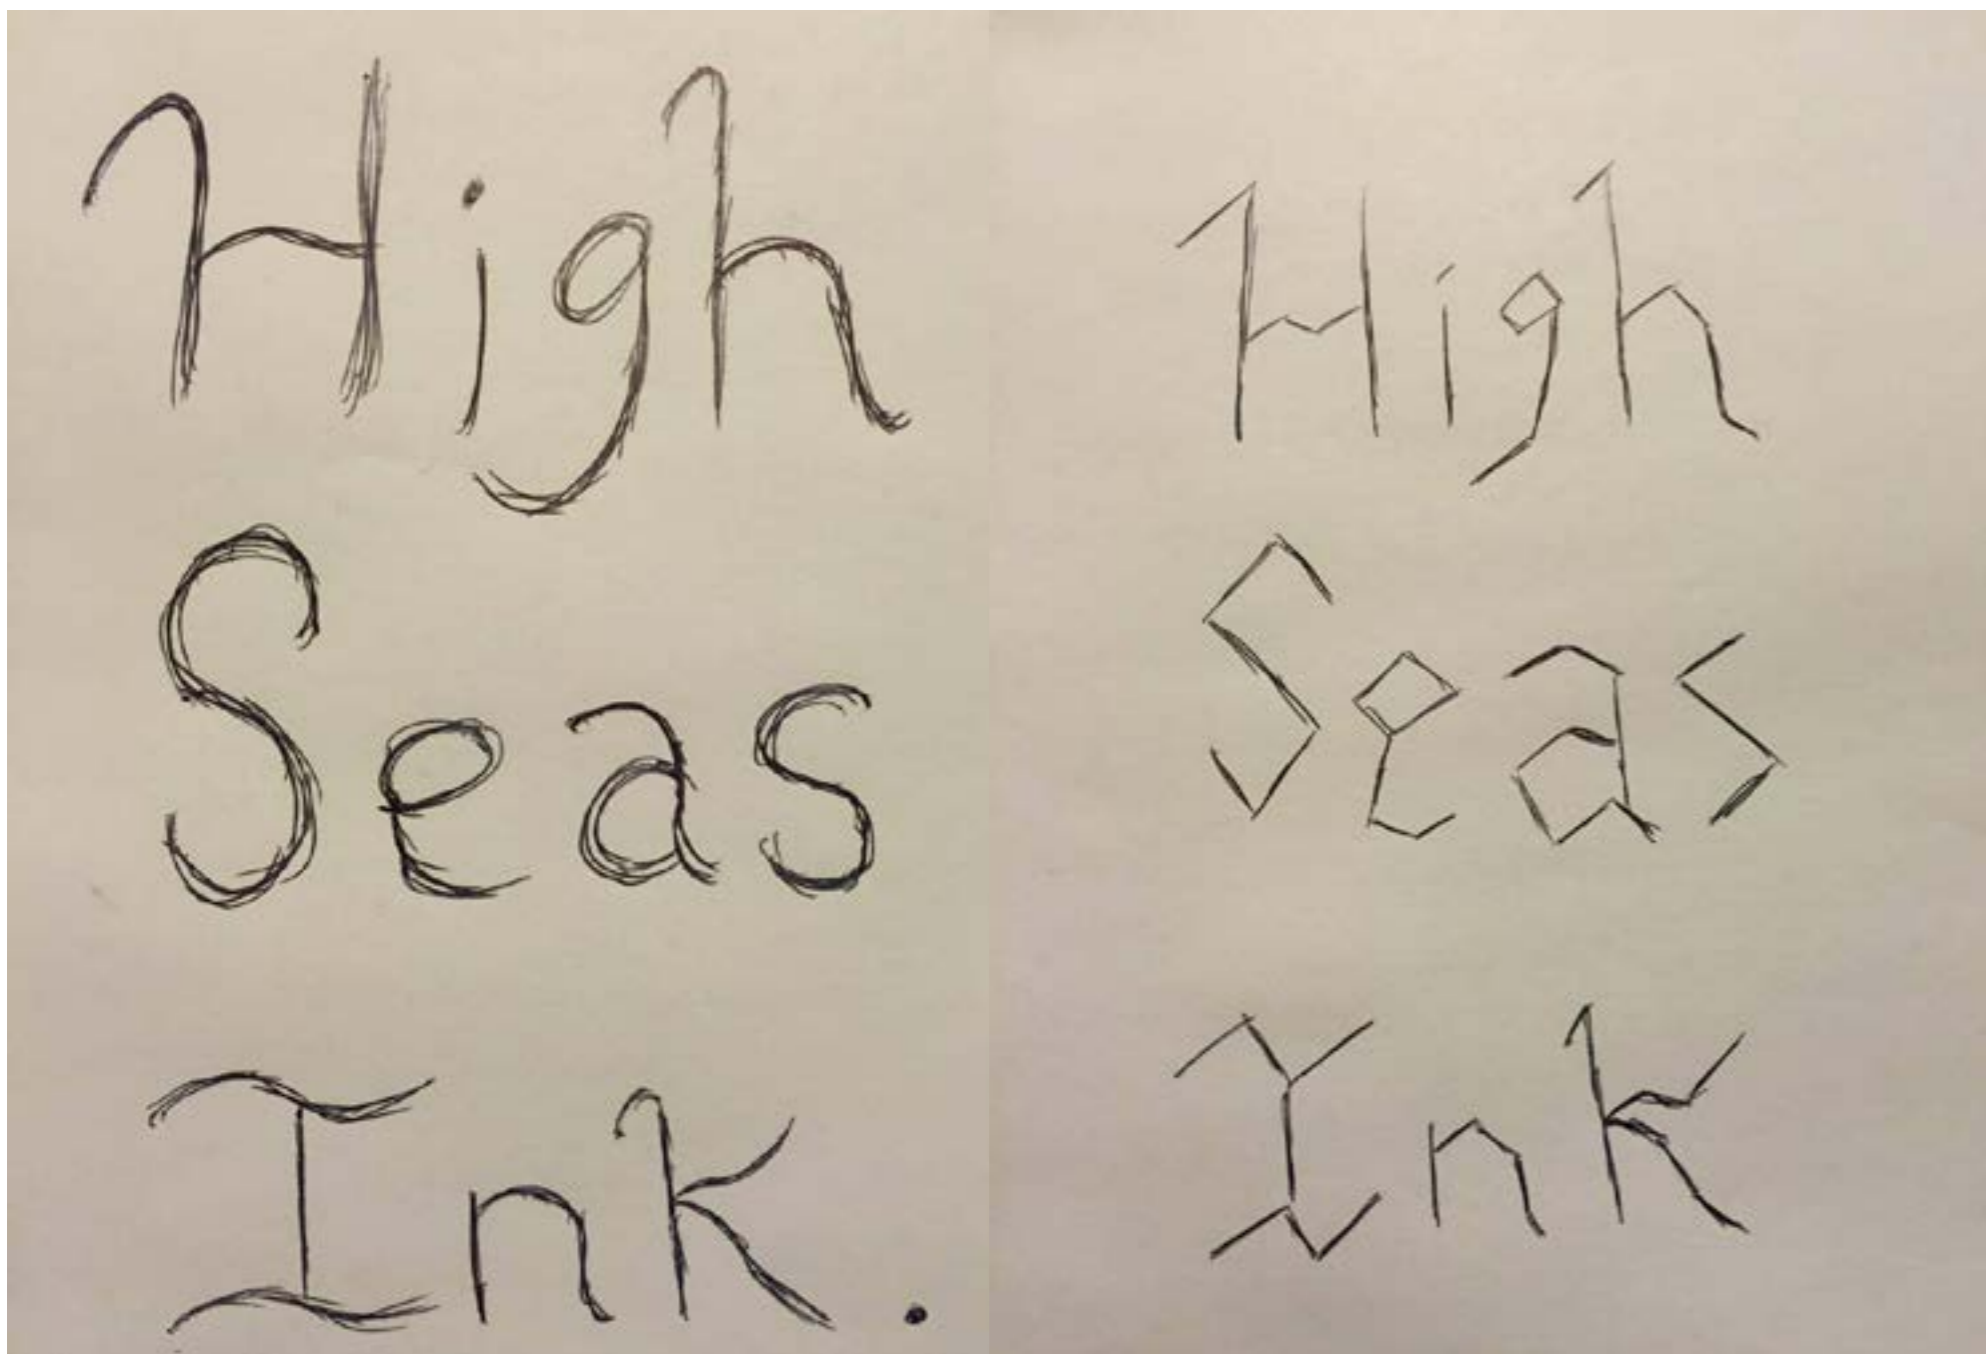 High
Seas
Ink.
High
Seas
Ink